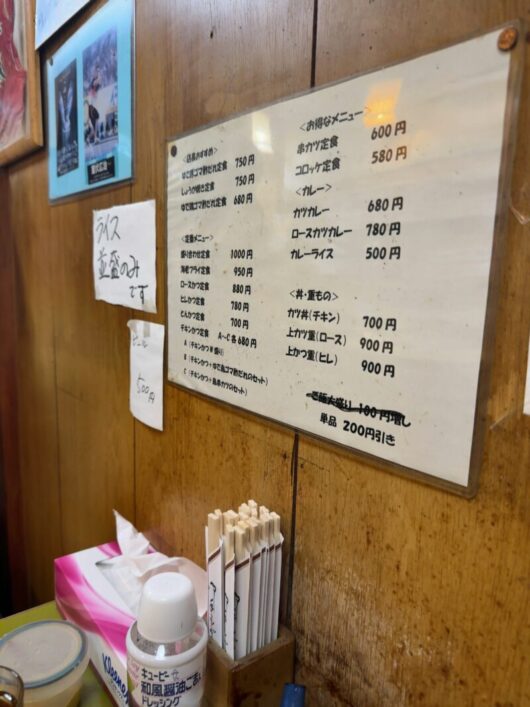 <店長おすすめ>
ゆで鶏ゴマ酢だれ定食 750円
しょうが焼き定食 750円
ゆで鶏ゴマ酢だれ定食 680円
<定番メニュー>
盛り合わせ定食 1000円
海老フライ定食 950円
ロースかつ定食 880円
ヒレかつ定食 780円
とんかつ定食 700円
チキンかつ定食 A~C 各680円
A (チキンかつ
B (チキンかつ+ゆで鶏ゴマ酢だれのセット)
C (チキンかつ+串カツのセット)
<お得なメニュー>
串カツ定食 600円
コロッケ定食 580円
<カレー>
カツカレー 680円
ロースカツカレー 780円
カレーライス 500円
<丼・重もの>
カツ丼(チキン) 700円
上カツ重(ロース) 900円
上かつ重(ヒレ) 900円
ご飯大盛り 100円増し
単品 200円引き
ライス
並盛のみ
です
ビール
500円
キユーピー
和風醤油ごま
ドレッシング
Kleenex